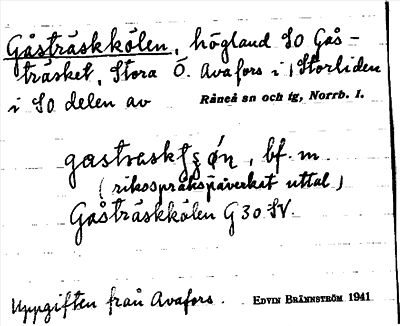 Gåsträskkölen, högland SO Gås-
träsket, Stora Ö. Avafors i, Storliden
i SO delen av Råneå sn och tg, Norrb. l.
gastraskʃɕøn, bf. m
(rikospråkspåverkat uttal)
Gåsträskkölen G 30 SV.
Uppgiften från Avafors. EDVIN BRÄNNSTRÖM 1941